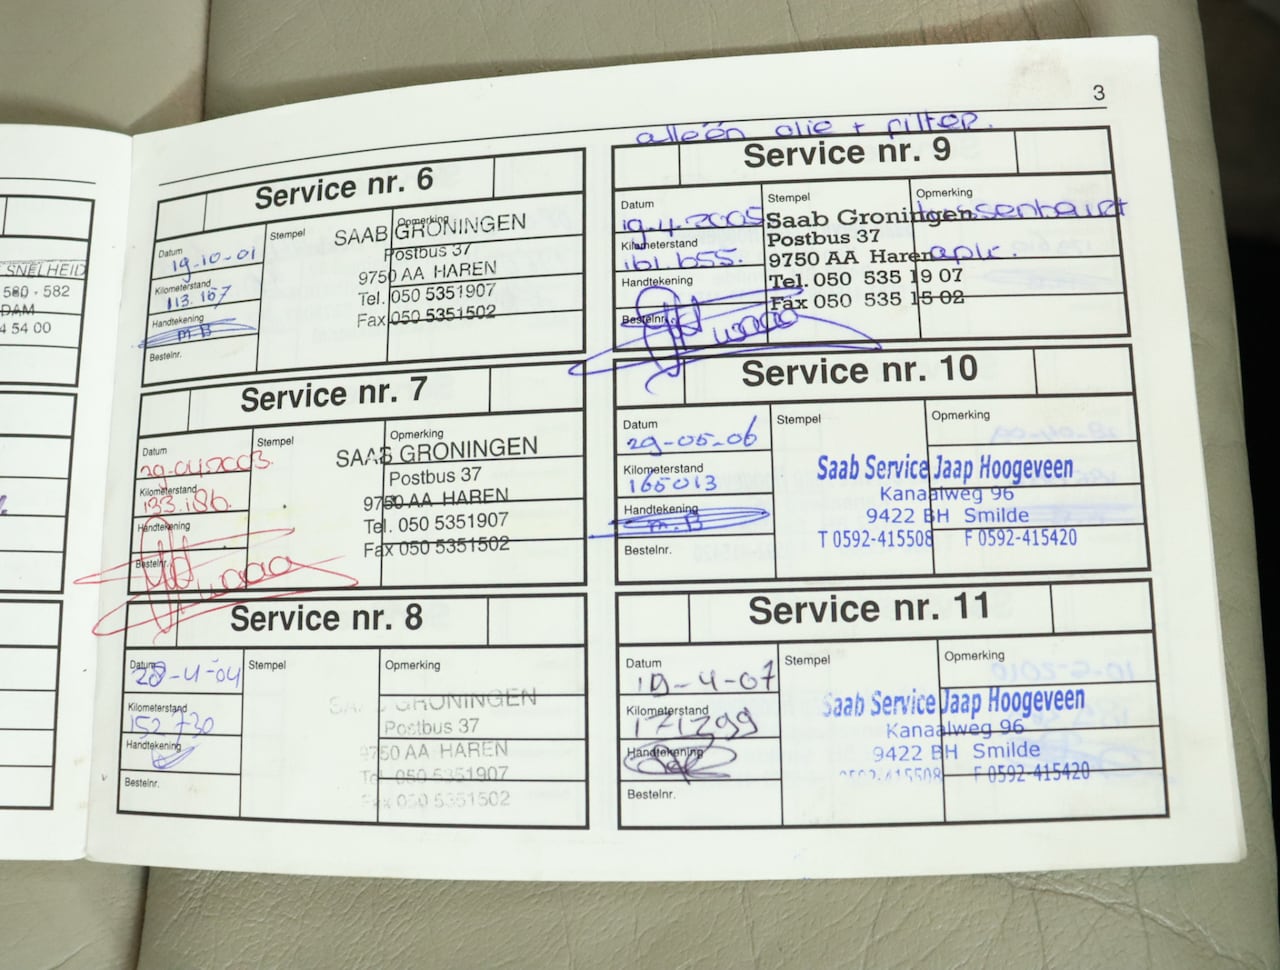 SNELHEID
580 - 582
DAM
4 54 00
3
Service nr. 6
Datum
19-10-01
Kilometerstand
113.167
Handtekening
m.B
Bestelnr.
Stempel
Opmerking
SAAB GRONINGEN
Postbus 37
9750 AA HAREN
Tel. 050 5351907
Fax 050 5351502
Service nr. 7
Datum
29-04-2003
Kilometerstand
133.186.
Handtekening
Bestelnr.
Stempel
Opmerking
SAAB GRONINGEN
Postbus 37
9750 AA HAREN
Tel. 050 5351907
Fax 050 5351502
Service nr. 8
Datum
28-4-04
Kilometerstand
152730
Handtekening
Bestelnr.
Stempel
Opmerking
SAAB GRONINGEN
Postbus 37
9750 AA HAREN
Tel. 050 5351907
Fax 050 5351502
alléén olie + filter.
Service nr. 9
Datum
19-4-2005
Kilometerstand
161.655.
Handtekening
Bestelnr.
Stempel
Opmerking
tussenbeurt
apk.
Saab Groningen
Postbus 37
9750 AA Haren
Tel. 050 535 19 07
Fax 050 535 15 02
Service nr. 10
Datum
29-05-06
Kilometerstand
166013
Handtekening
m.B
Bestelnr.
Stempel
Opmerking
Saab Service Jaap Hoogeveen
Kanaalweg 96
9422 BH Smilde
T 0592-415508 F 0592-415420
Service nr. 11
Datum
19-4-07
Kilometerstand
171299
Handtekening
Bestelnr.
Stempel
Opmerking
Saab Service Jaap Hoogeveen
Kanaalweg 96
9422 BH Smilde
0592-415508 F 0592-415420